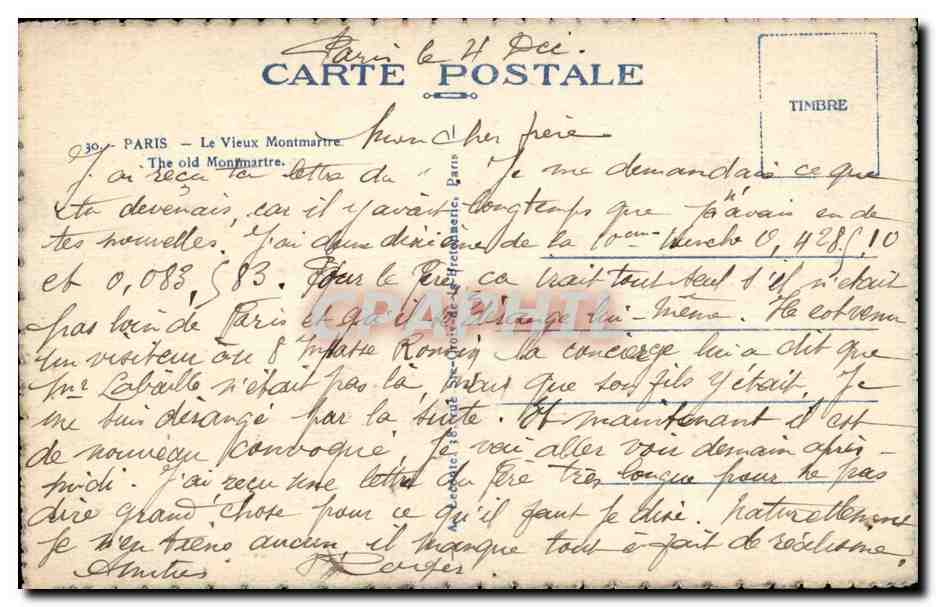 Paris le 4 Déc.
CARTE POSTALE
TIMBRE
30. - PARIS - Le Vieux Montmartre
The old Montmartre.
Mon cher frère
J'ai reçu ta lettre du Je me demandais ce que
tu devenais, car il y avait longtemps que j'avais eu de
tes nouvelles. J'ai deux dixième de la tranche 0,428510
et 0,083,583. Pour le Père, ca irait tout seul s'il n'était
pas loin de Paris et qu'il se dérange lui-même. Il est venu
un visiteur au 8 Impasse Ronsin, la concierge lui a dit que
Mr Labaille n'était pas là, mais que son fils y était. Je
me suis dérangé par la suite. Et maintenant il est
de nouveau convoqué. Je vais aller voir demain après-
midi. J'ai reçu une lettre du Père très longue pour ne pas
dire grand chose pour ce qu'il faut je dirai. Naturellement
je n'en tiens aucun, il manque tout à fait de réalisme
Amitiés Roger.
CPAPHIL
Au Lecontel, 38, rue Ste-Croix-de-la-Bretonnerie, Paris